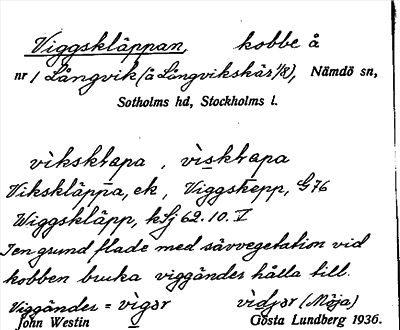 Viggskläppan, kobbe å
nr 1 Långvik (å Långvikskär 1/8), Nämdö sn,
Sotholms hd, Stockholms l.
vìkskłapa, vìskłapa
Vikskläppa, ek, Viggskepp, G76
Wiggskläpp, kSj 62.10.V
I en grund flade med sävvegetation vid
kobben bruka viggänder hålla till.
Viggänder = vìgər vìdjər (Möja)
John Westin Gösta Lundberg 1936.